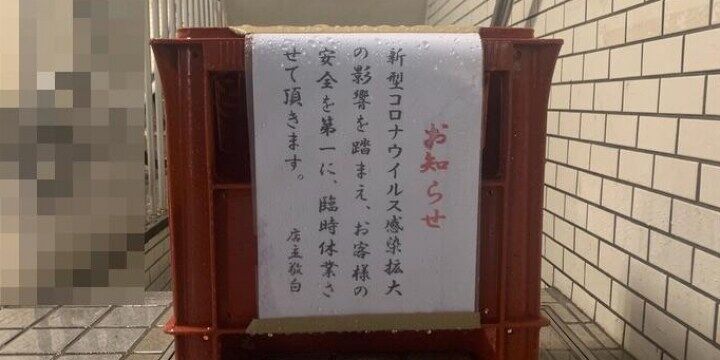 お知らせ
新型コロナウイルス感染拡大
の影響を踏まえ、お客様の
安全を第一に、臨時休業さ
せて頂きます。
店主敬白